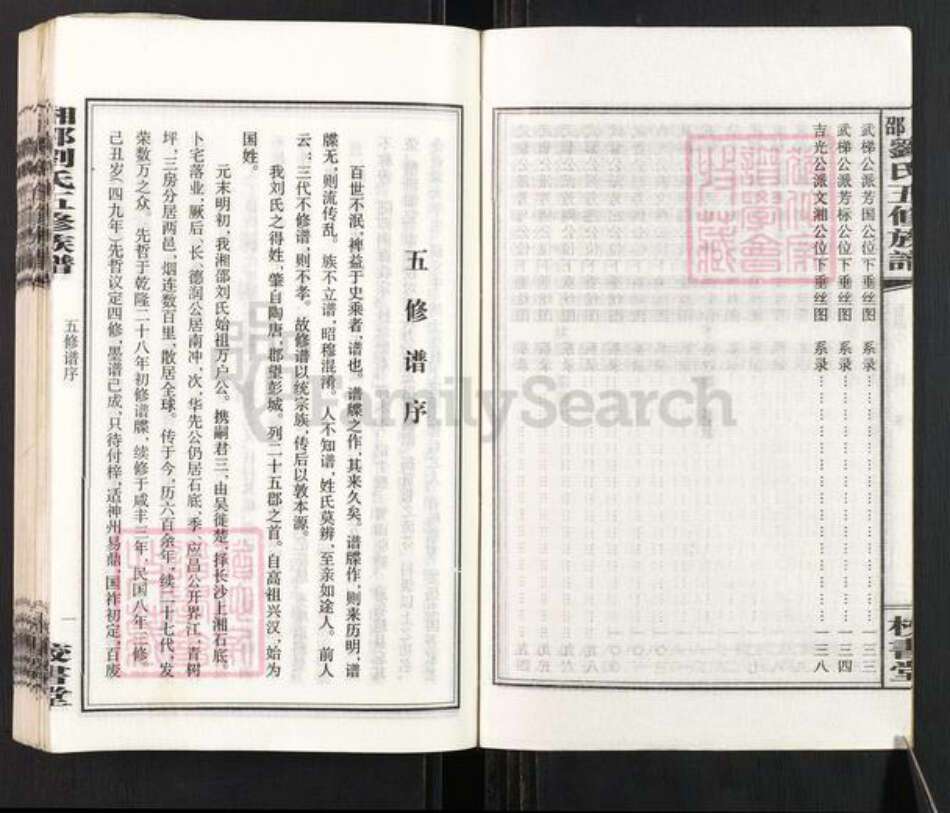 邵劉氏五修族譜
武梯公派芳国公位下垂丝图 系录……………一三三
武梯公派芳标公位下垂丝图 系录……………一三四
吉光公派文湘公位下垂丝图 系录……………一三八
校書堂
五修谱序
百世不泯，裨益于史乘者，谱也。谱牒之作，其来久矣。谱牒作，则来历明，谱
牒无，则流传乱。族不立谱，昭穆混淆，人不知谱，姓氏莫辨，至亲如途人。前人
云：三代不修谱，则不孝。故修谱以统宗族，传后以敦本源。
我刘氏之得姓，肇自陶唐，郡望彭城。列二十五郡之首。自高祖兴汉，始为
国姓。
元末明初，我湘邵刘氏始祖万户公。携嗣君三，由吴徙楚，择长沙上湘石底。
卜宅落业，厥后，长、德润公居南冲，次、华先公仍居石底，季、应昌公开界江，青树
坪，三房分居两邑，烟连数百里，散居全球。传于今，历六百余年，续二十七代，发
荣数万之众。先哲于乾隆二十八年初修谱牒，续修于咸丰三年，民国八年三修，
己丑岁（四九年）先哲议定四修，墨谱已成，只待付梓，适神州易鼎，国祚初定，百废
湘邵刘氏五修族譜
五修谱序
一
校書堂
FamilySearch